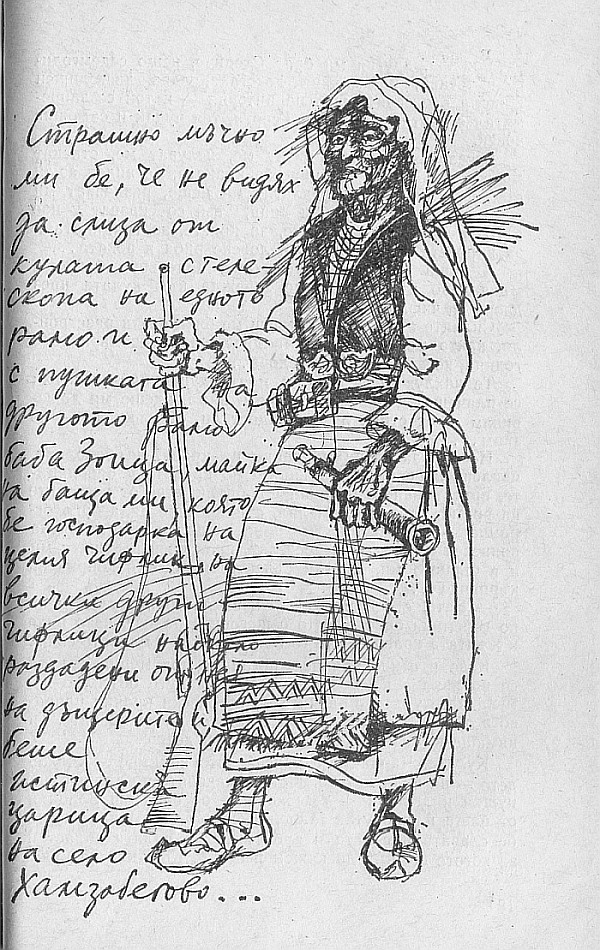 Страшно мъчно
ми бе, че не видях
да слиза от
кулата с теле-
скопа на едното
рамо и
с пушката на
другото рамо
баба Зоица майка
на баща ми, която
бе господарка на
целия чифлик, на
всички други
чифлици
раздадени от нея
на дъщерите и
беше
истинска
царица
на село
Хамзабегово...